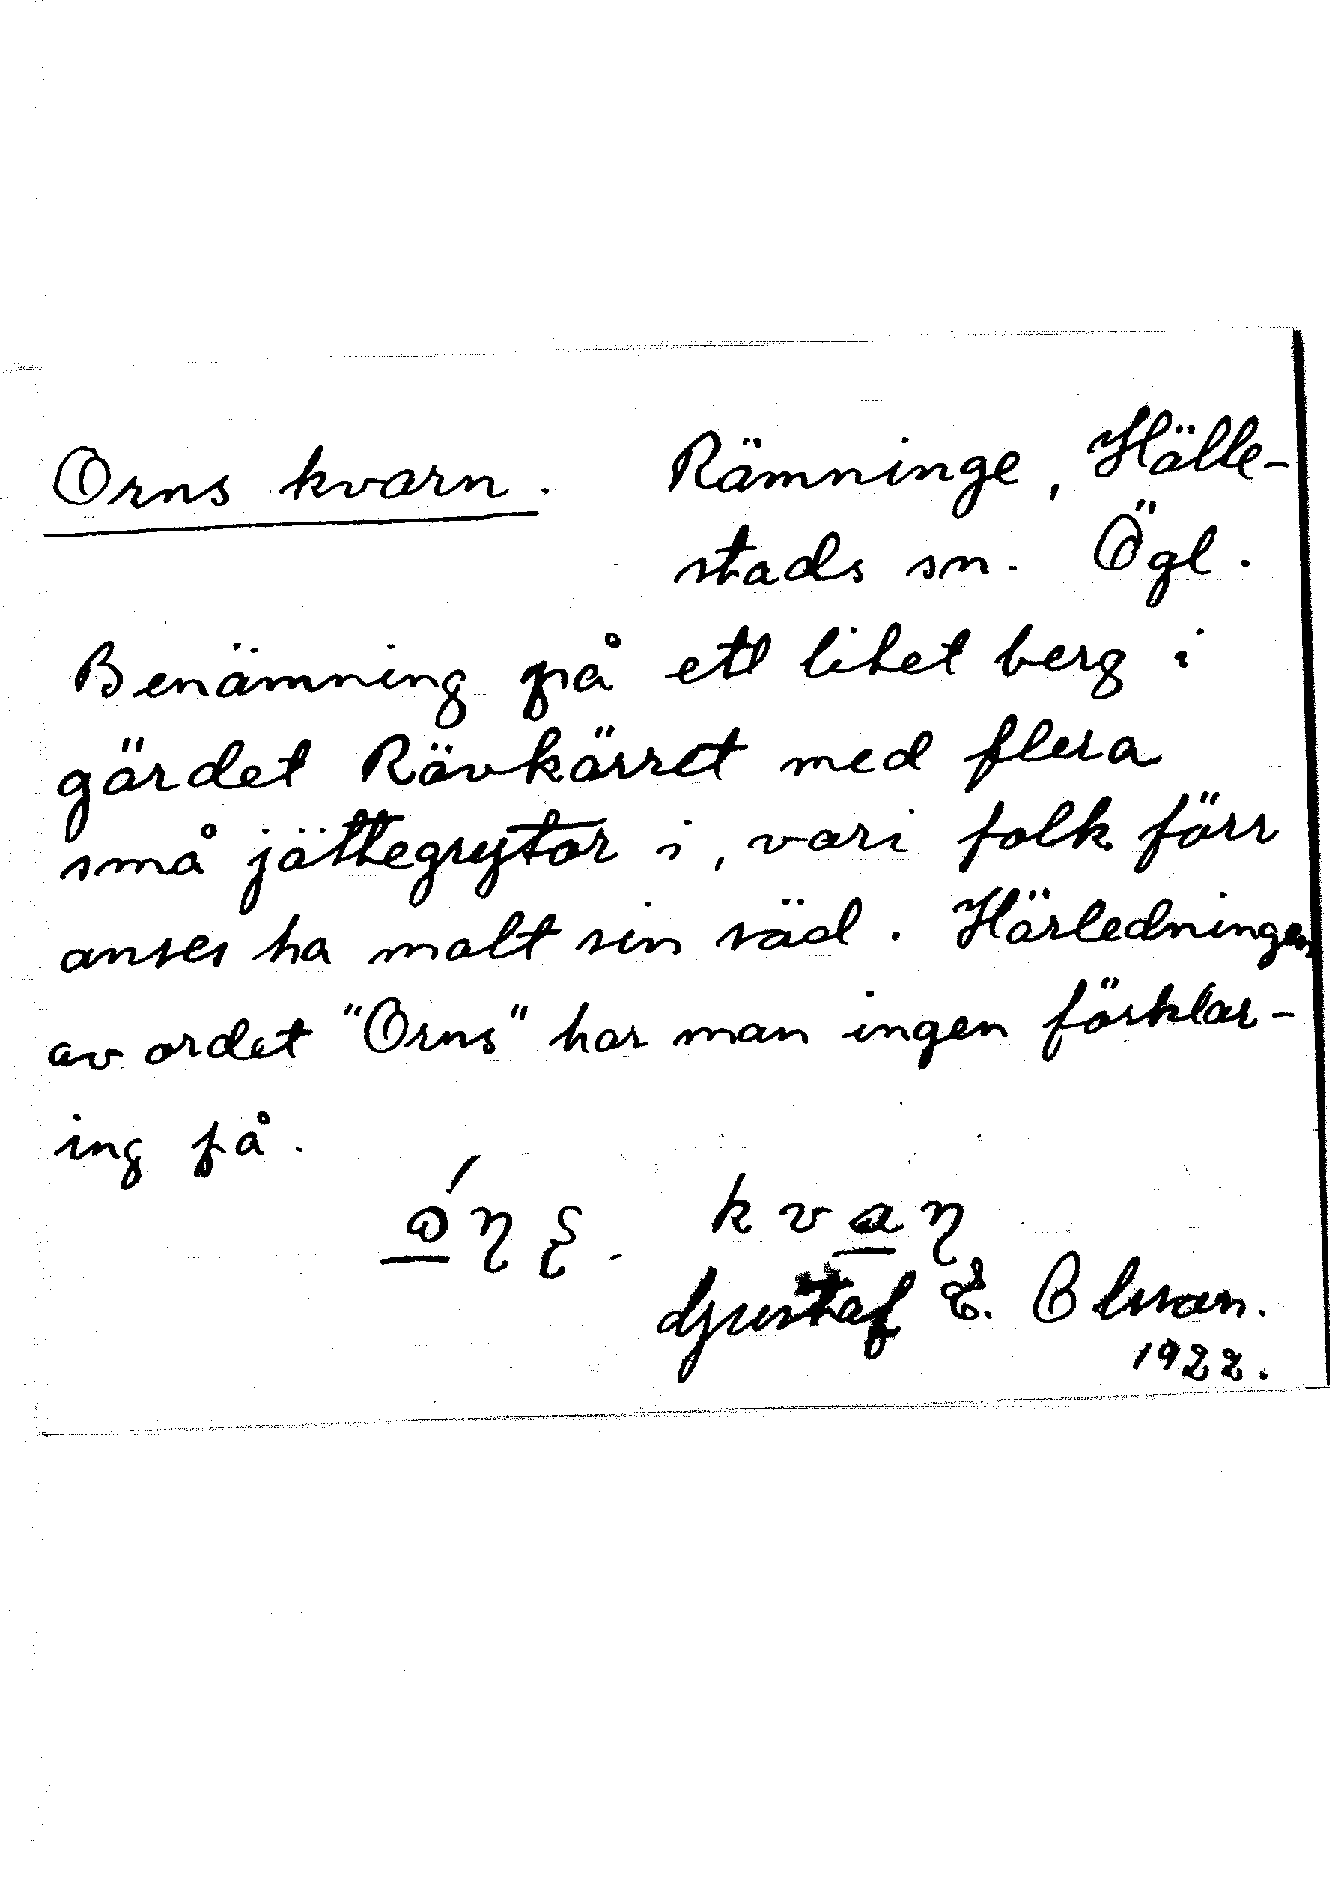 Orns kvarn. Rämninge, Hälle-
stads sn. Ögl.
Benämning på ett litet berg i
gärdet Rävkärret med flera
små jättegrytor i, vari folk förr
anses ha malt sin säd. Härledningen
av ordet "Orns" har man ingen förklar-
ing på.
kvaɳ
Gustaf E. Olsson.
1922.